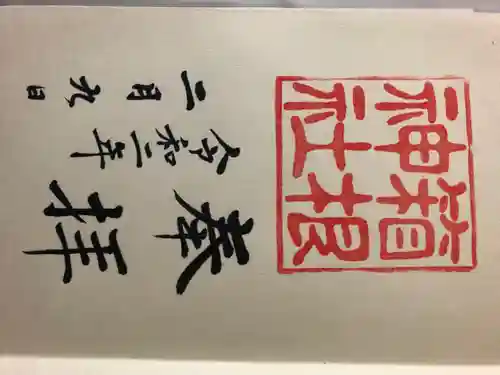 箱根
神社
奉拝
令和二年
二月九日